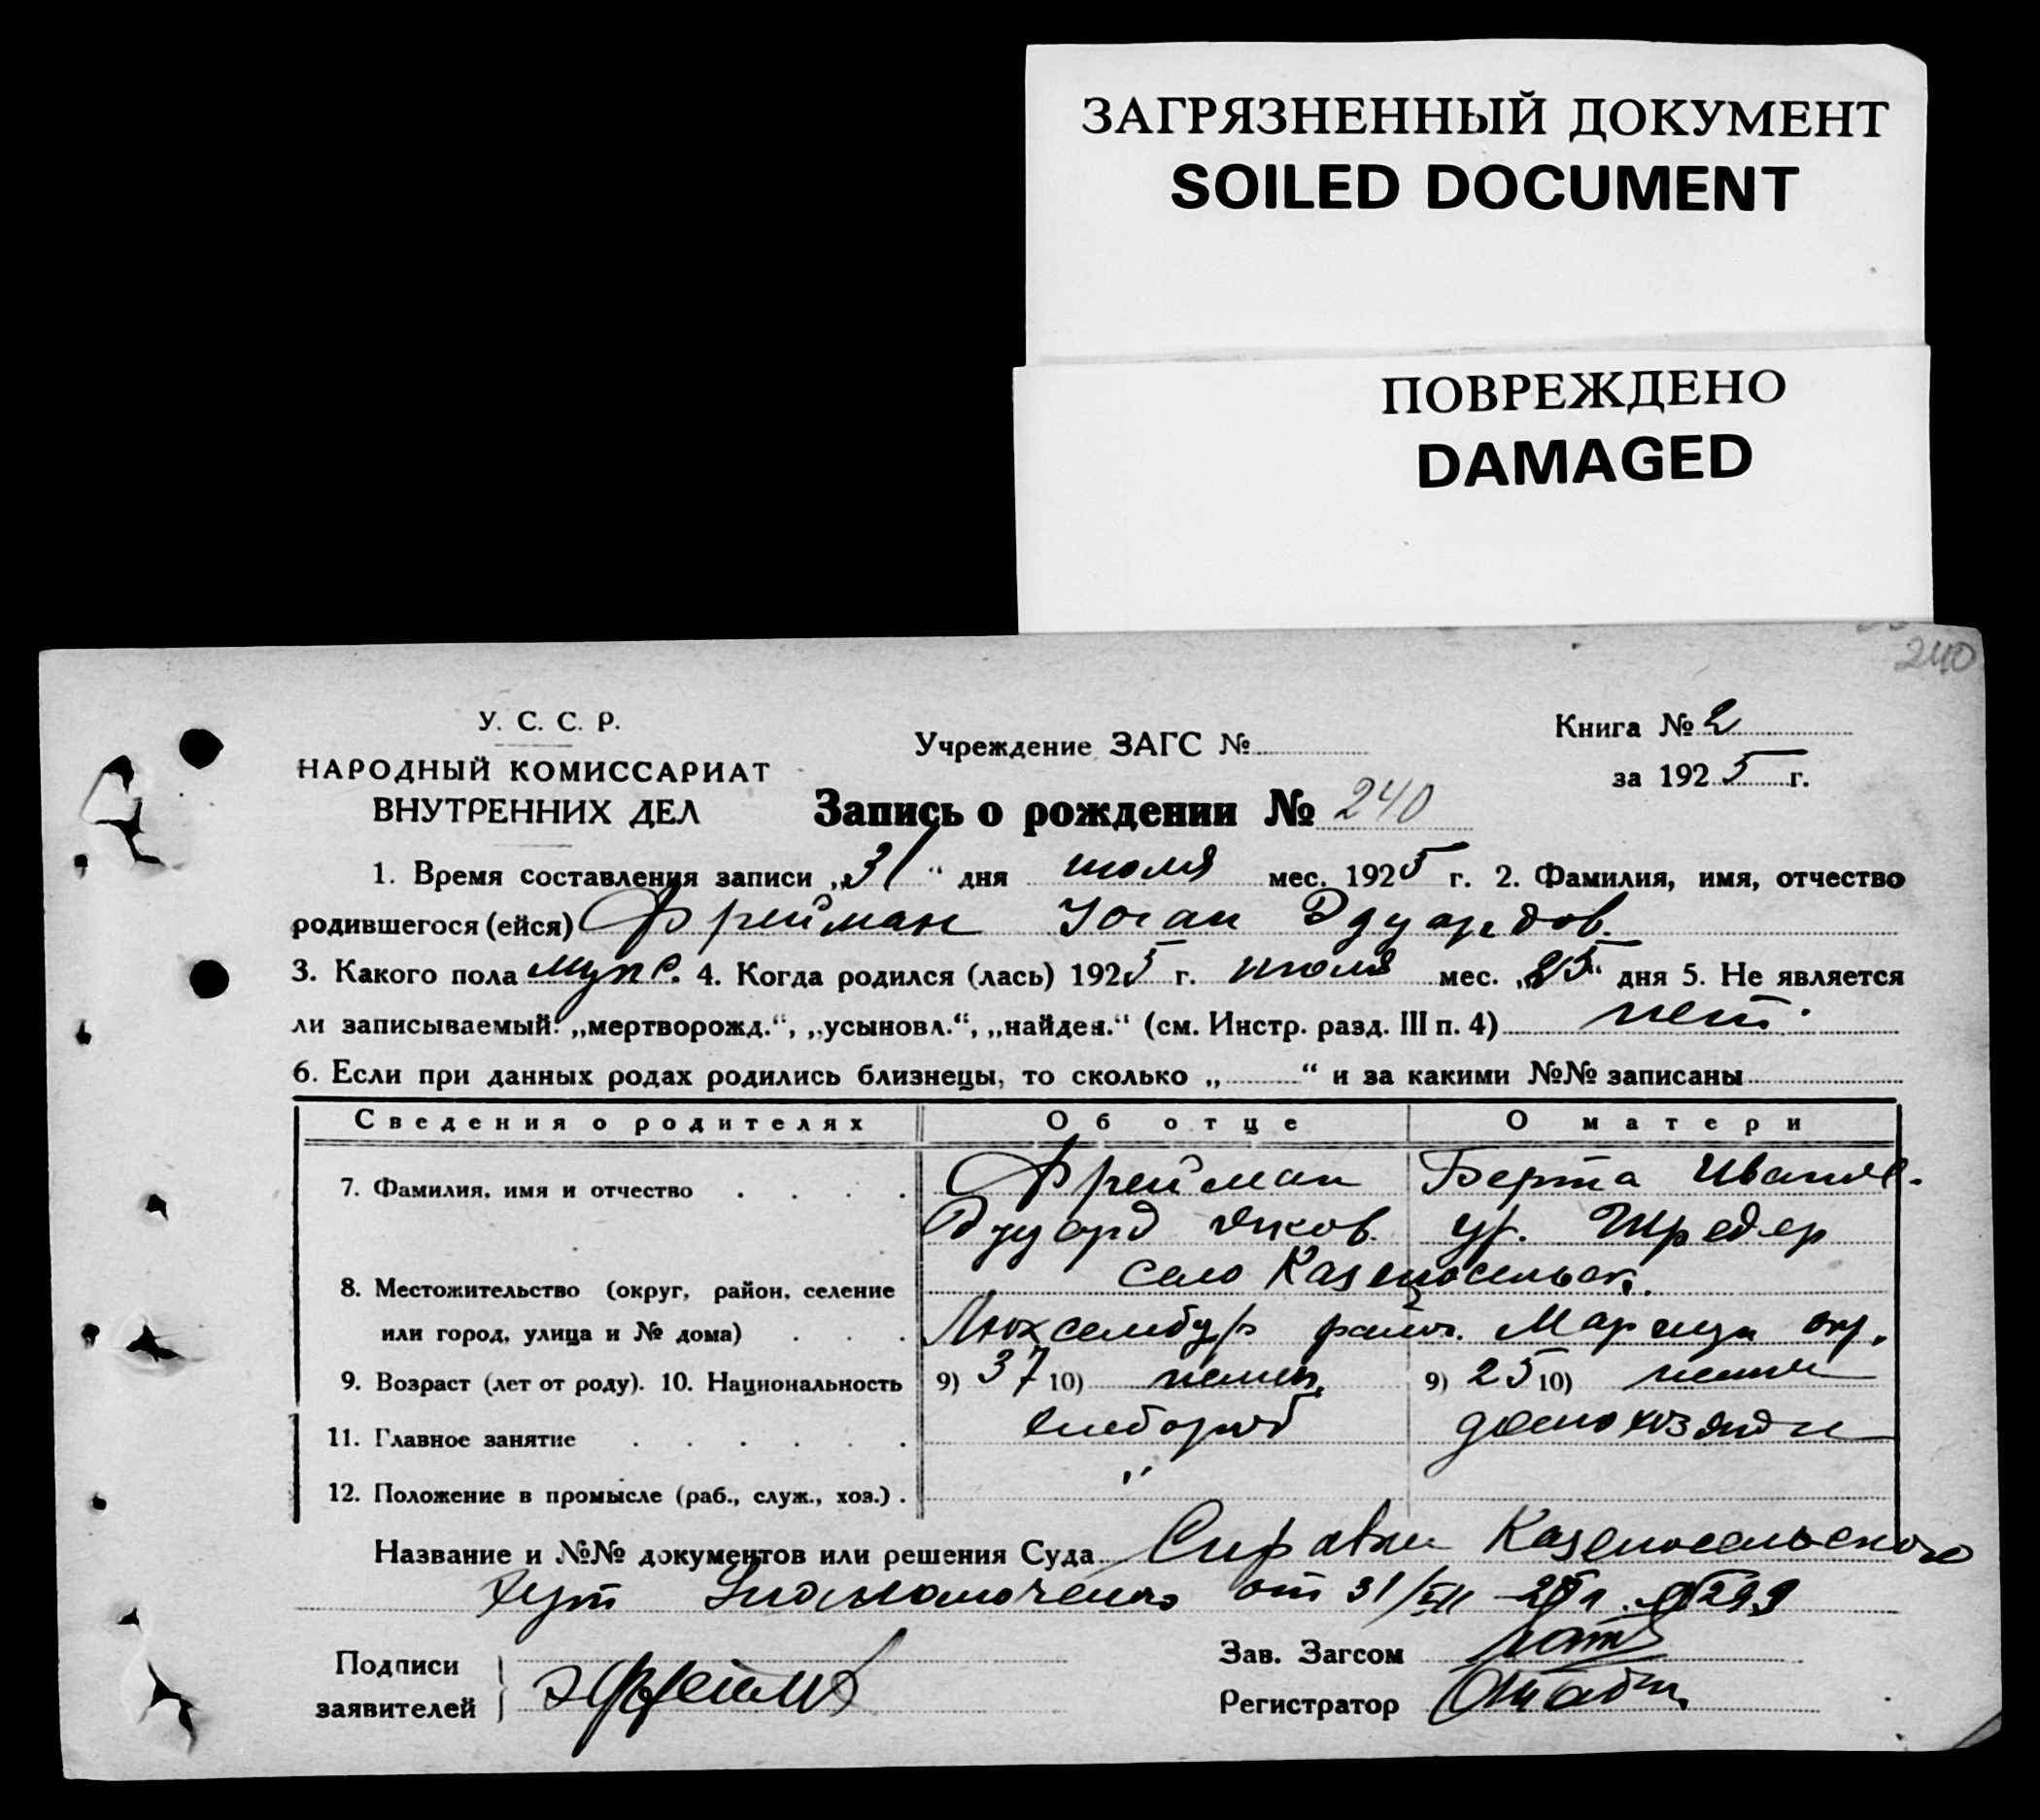 ЗАГРЯЗНЕННЫЙ ДОКУМЕНТ
SOILED DOCUMENT
ПОВРЕЖДЕНО
DAMAGED
240
У. С. С. Р.
НАРОДНЫЙ КОМИССАРИАТ
ВНУТРЕННИХ ДЕЛ
Учреждение ЗАГС №
Книга № 2
за 1925 г.
Запись о рождении № 240
1. Время составления записи „31“ дня июля мес. 1925 г. 2. Фамилия, имя, отчество
родившегося (ейся) Фрейман Иоган Эдуардов.
3. Какого пола муж. 4. Когда родился (лась) 1925 г. июля мес. „25“ дня 5. Не является
ли записываемый: „мертворожд.“, „усыновл.“, „найден.“ (см. Инстр. разд. III п. 4) нет.
6. Если при данных родах родились близнецы, то сколько „ “ и за какими №№ записаны
Сведения о родителях Об отце О матери
7. Фамилия, имя и отчество Фрейман Берта Иванов.
Эдуард Яков. ур. Шредер
8. Местожительство (округ, район, селение село Казеносельск.
или город, улица и № дома) Люксембург район. Мариуп окр.
9. Возраст (лет от роду). 10. Национальность 9) 37 10) немец 9) 25 10) немк
11. Главное занятие хлебороб домохозяйк
12. Положение в промысле (раб., служ., хоз.) . "
Название и №№ документов или решения Суда Справки Казеносельского
от 31/VII - 25 г. № 299
Подписи
заявителей
Зав. Загсом
Регистратор